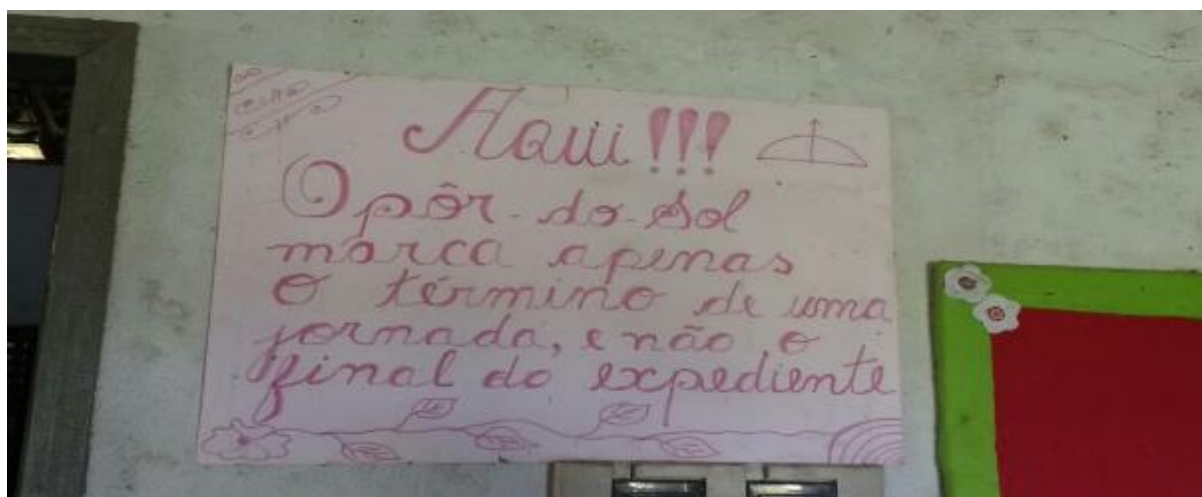 Aqui!!!
O pôr-do-Sol
marca apenas
o término de uma
jornada, e não o
final do expediente